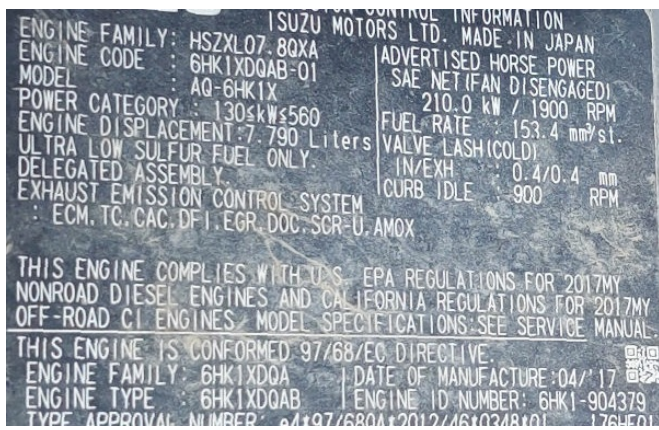 CONTROL INFORMATION
ISUZU MOTORS LTD. MADE IN JAPAN
ENGINE FAMILY: HSZXL07.8QXA
ENGINE CODE : 6HK1XDQAB-01
MODEL : AQ-6HK1X
POWER CATEGORY : 130≤kW≤560
ENGINE DISPLACEMENT:7.790 Liters
ULTRA LOW SULFUR FUEL ONLY.
DELEGATED ASSEMBLY.
EXHAUST EMISSION CONTROL SYSTEM
: ECM,TC,CAC,DFI,EGR,DOC,SCR-U,AMOX
ADVERTISED HORSE POWER
SAE NET(FAN DISENGAGED)
210.0 kW / 1900 RPM
FUEL RATE : 153.4 mm³/st.
VALVE LASH(COLD)
IN/EXH : 0.4/0.4 mm
CURB IDLE : 900 RPM
THIS ENGINE COMPLIES WITH U.S. EPA REGULATIONS FOR 2017MY
NONROAD DIESEL ENGINES AND CALIFORNIA REGULATIONS FOR 2017MY
OFF-ROAD CI ENGINES. MODEL SPECIFICATIONS:SEE SERVICE MANUAL.
THIS ENGINE IS CONFORMED 97/68/EC DIRECTIVE.
ENGINE FAMILY: 6HK1XDQA
ENGINE TYPE : 6HK1XDQAB
DATE OF MANUFACTURE:04/'17
ENGINE ID NUMBER: 6HK1-904379
TYPE APPROVAL NUMBER: e4*97/68QA*2012/46*0348*01 176HF01